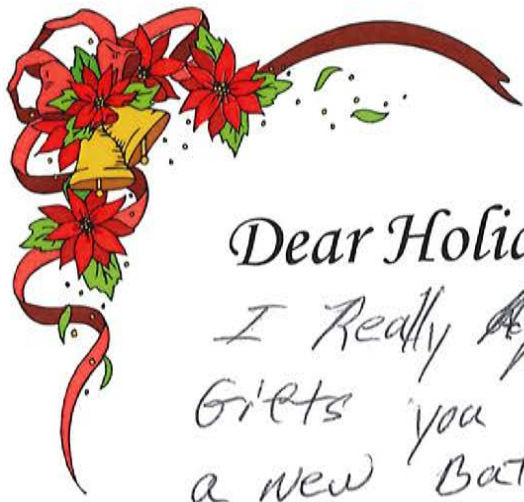 Dear Holid
I Really
Gifts you
a new Bat